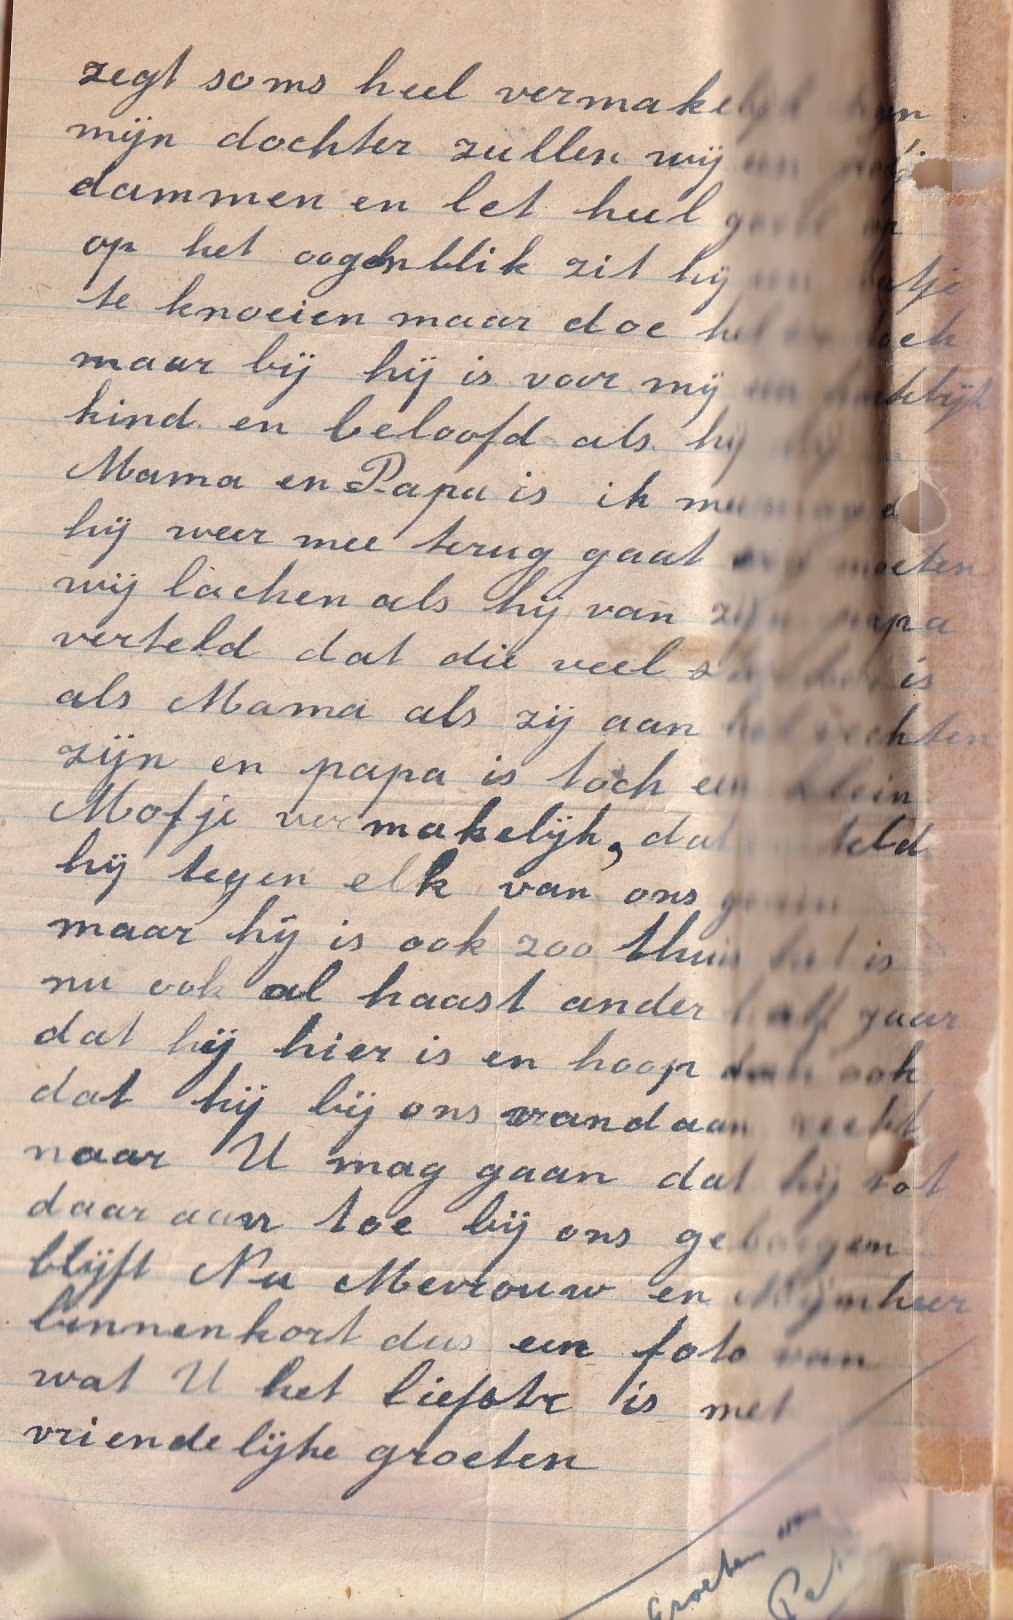 zegt soms heel vermakelijk
mijn dochter zullen wij
dammen en let heel goed op
op het oogenblik zit hij
te knoeien maar doe het toch
maar bij hij is voor mij
kind en beloofd als hij bij
Mama en Papa is ik
hij weer mee terug gaat moeten
wij lachen als hij van zijn papa
verteld dat die veel is
als Mama als zij aan het vechten
zijn en papa is toch een klein
Mofje vermakelijk, dat
hij tegen elk van ons gezin
maar hij is ook zoo thuis het is
nu ook al haast ander half jaar
dat hij hier is en hoop dan ook
dat hij bij ons vandaan recht
naar U mag gaan dat hij tot
daar aan toe bij ons geborgen
blijft Nu Mevrouw en Mijnheer
binnenkort dus een foto van
wat U het liefste is met
vriendelijke groeten
Groeten van